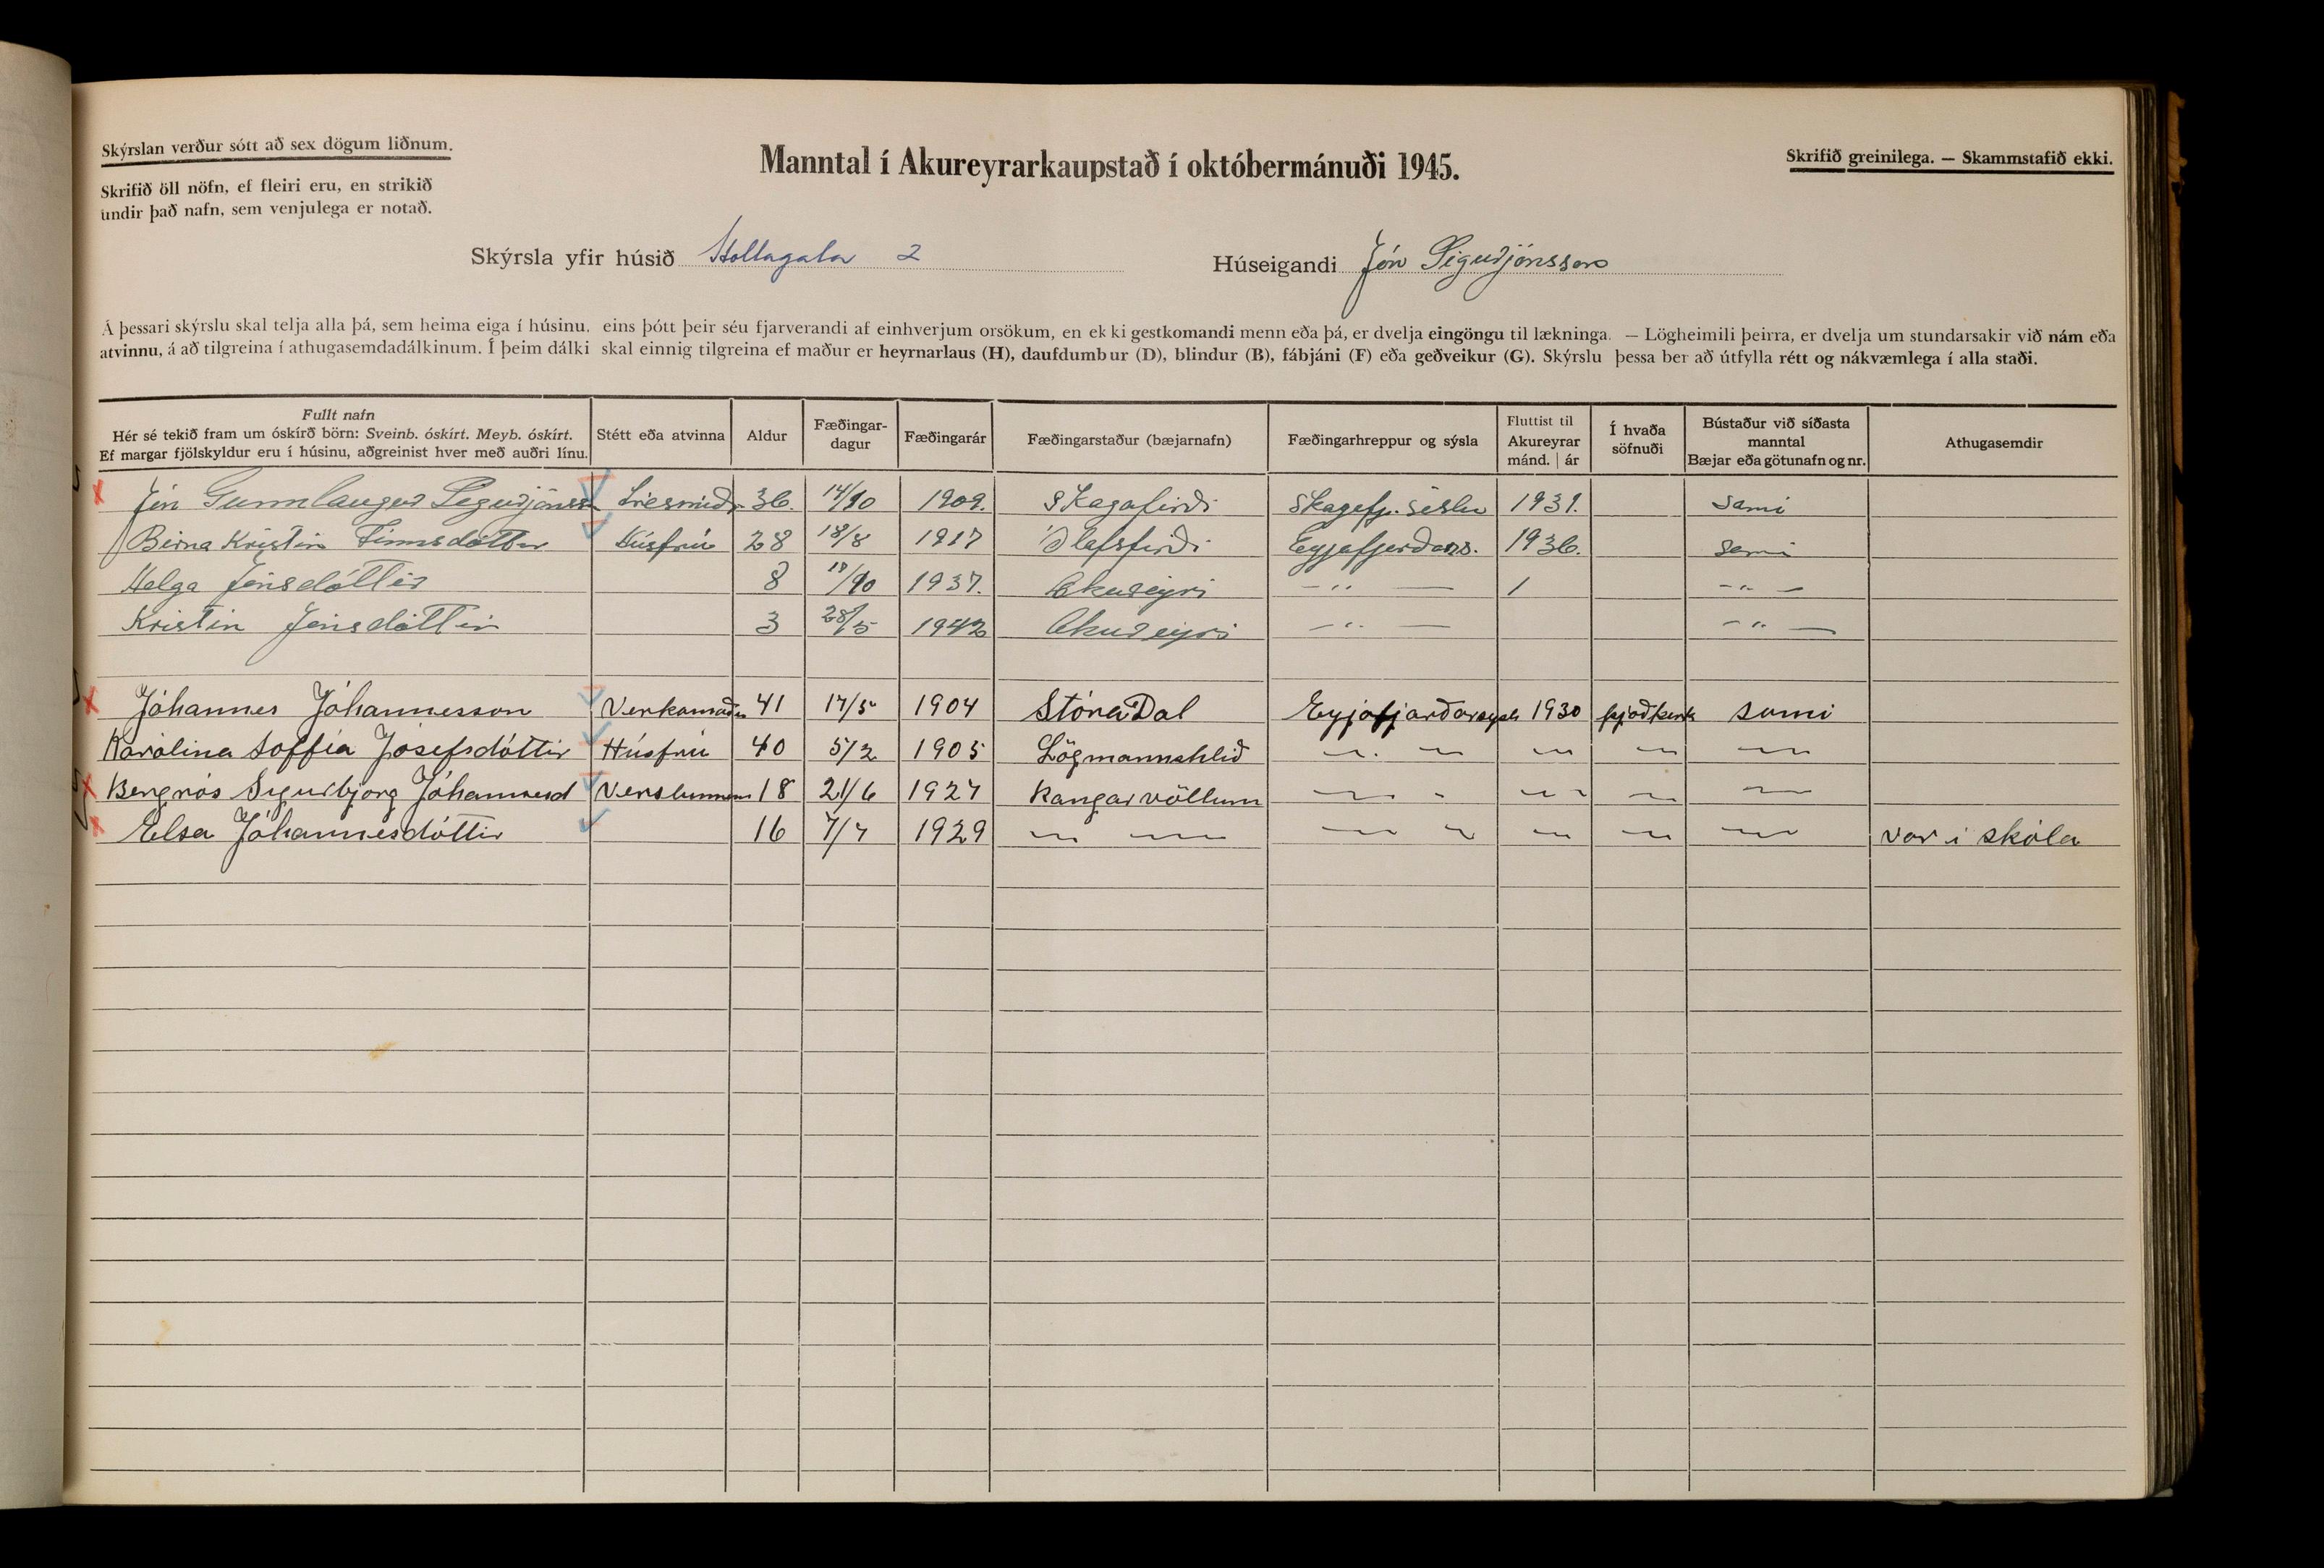 Skýrslan verður sótt að sex dögum liðnum.
Skrifið öll nöfn, ef fleiri eru, en strikið
undir það nafn, sem venjulega er notað.
Manntal í Akureyrarkaupstað í októbermánuði 1945.
Skrifið greinilega. — Skammstafið ekki.
Skýrsla yfir húsið Hollagata 2 Húseigandi Jón Sigurjónsson
Á þessari skýrslu skal telja alla þá, sem heima eiga í húsinu, eins þótt þeir séu fjarverandi af einhverjum orsökum, en ekki gestkomandi menn eða þá, er dvelja eingöngu til lækninga. — Lögheimili þeirra, er dvelja um stundarsakir við nám eða
atvinnu, á að tilgreina í athugasemdadálkinum. Í þeim dálki skal einnig tilgreina ef maður er heyrnarlaus (H), daufdumbur (D), blindur (B), fábjáni (F) eða geðveikur (G). Skýrslu þessa ber að útfylla rétt og nákvæmlega í alla staði.
Fullt nafn
Hér sé tekið fram um óskírð börn: Sveinb. óskírt. Meyb. óskírt.
Ef margar fjölskyldur eru í húsinu, aðgreinist hver með auðri línu.
Stétt eða atvinna
Aldur
Fæðingar-
dagur
Fæðingarár
Fæðingarstaður (bæjarnafn)
Fæðingarhreppur og sýsla
Fluttist til
Akureyrar
mánd. | ár
Í hvaða
söfnuði
Bústaður við síðasta
manntal
Bæjar eða götunafn og nr.
Athugasemdir
Jón Gunnlaugur Sigurjónss 36. 14/10 1909. Skagafirði Skagafj. séslu 1931. Sami
Birna Kristin Finnsdóttir Húsfrú 28 18/8 1917 Ólafsfirði Eyjafjarðars. 1936. Sami
Helga Jónsdóttir 8 /10 1937. Akureyri -"- — -"-
Kristin Jónsdóttir 3 28/5 1942 Akureyri -"- — -"-
Jóhannes Jóhannesson Verkamaður 41 17/5 1904 StóraDal Eyjafjarðarsysl 1930 þjoðkirk sami
Karólina Soffía Jósefsdóttir Húsfrú 40 5/2 1905 Lögmannshlið
Bergrós Sigurbjörg Jóhannesd 18 21/6 1927 Kangarvöllum
Elsa Jóhannesdóttir 16 7/7 1929 var i skóla